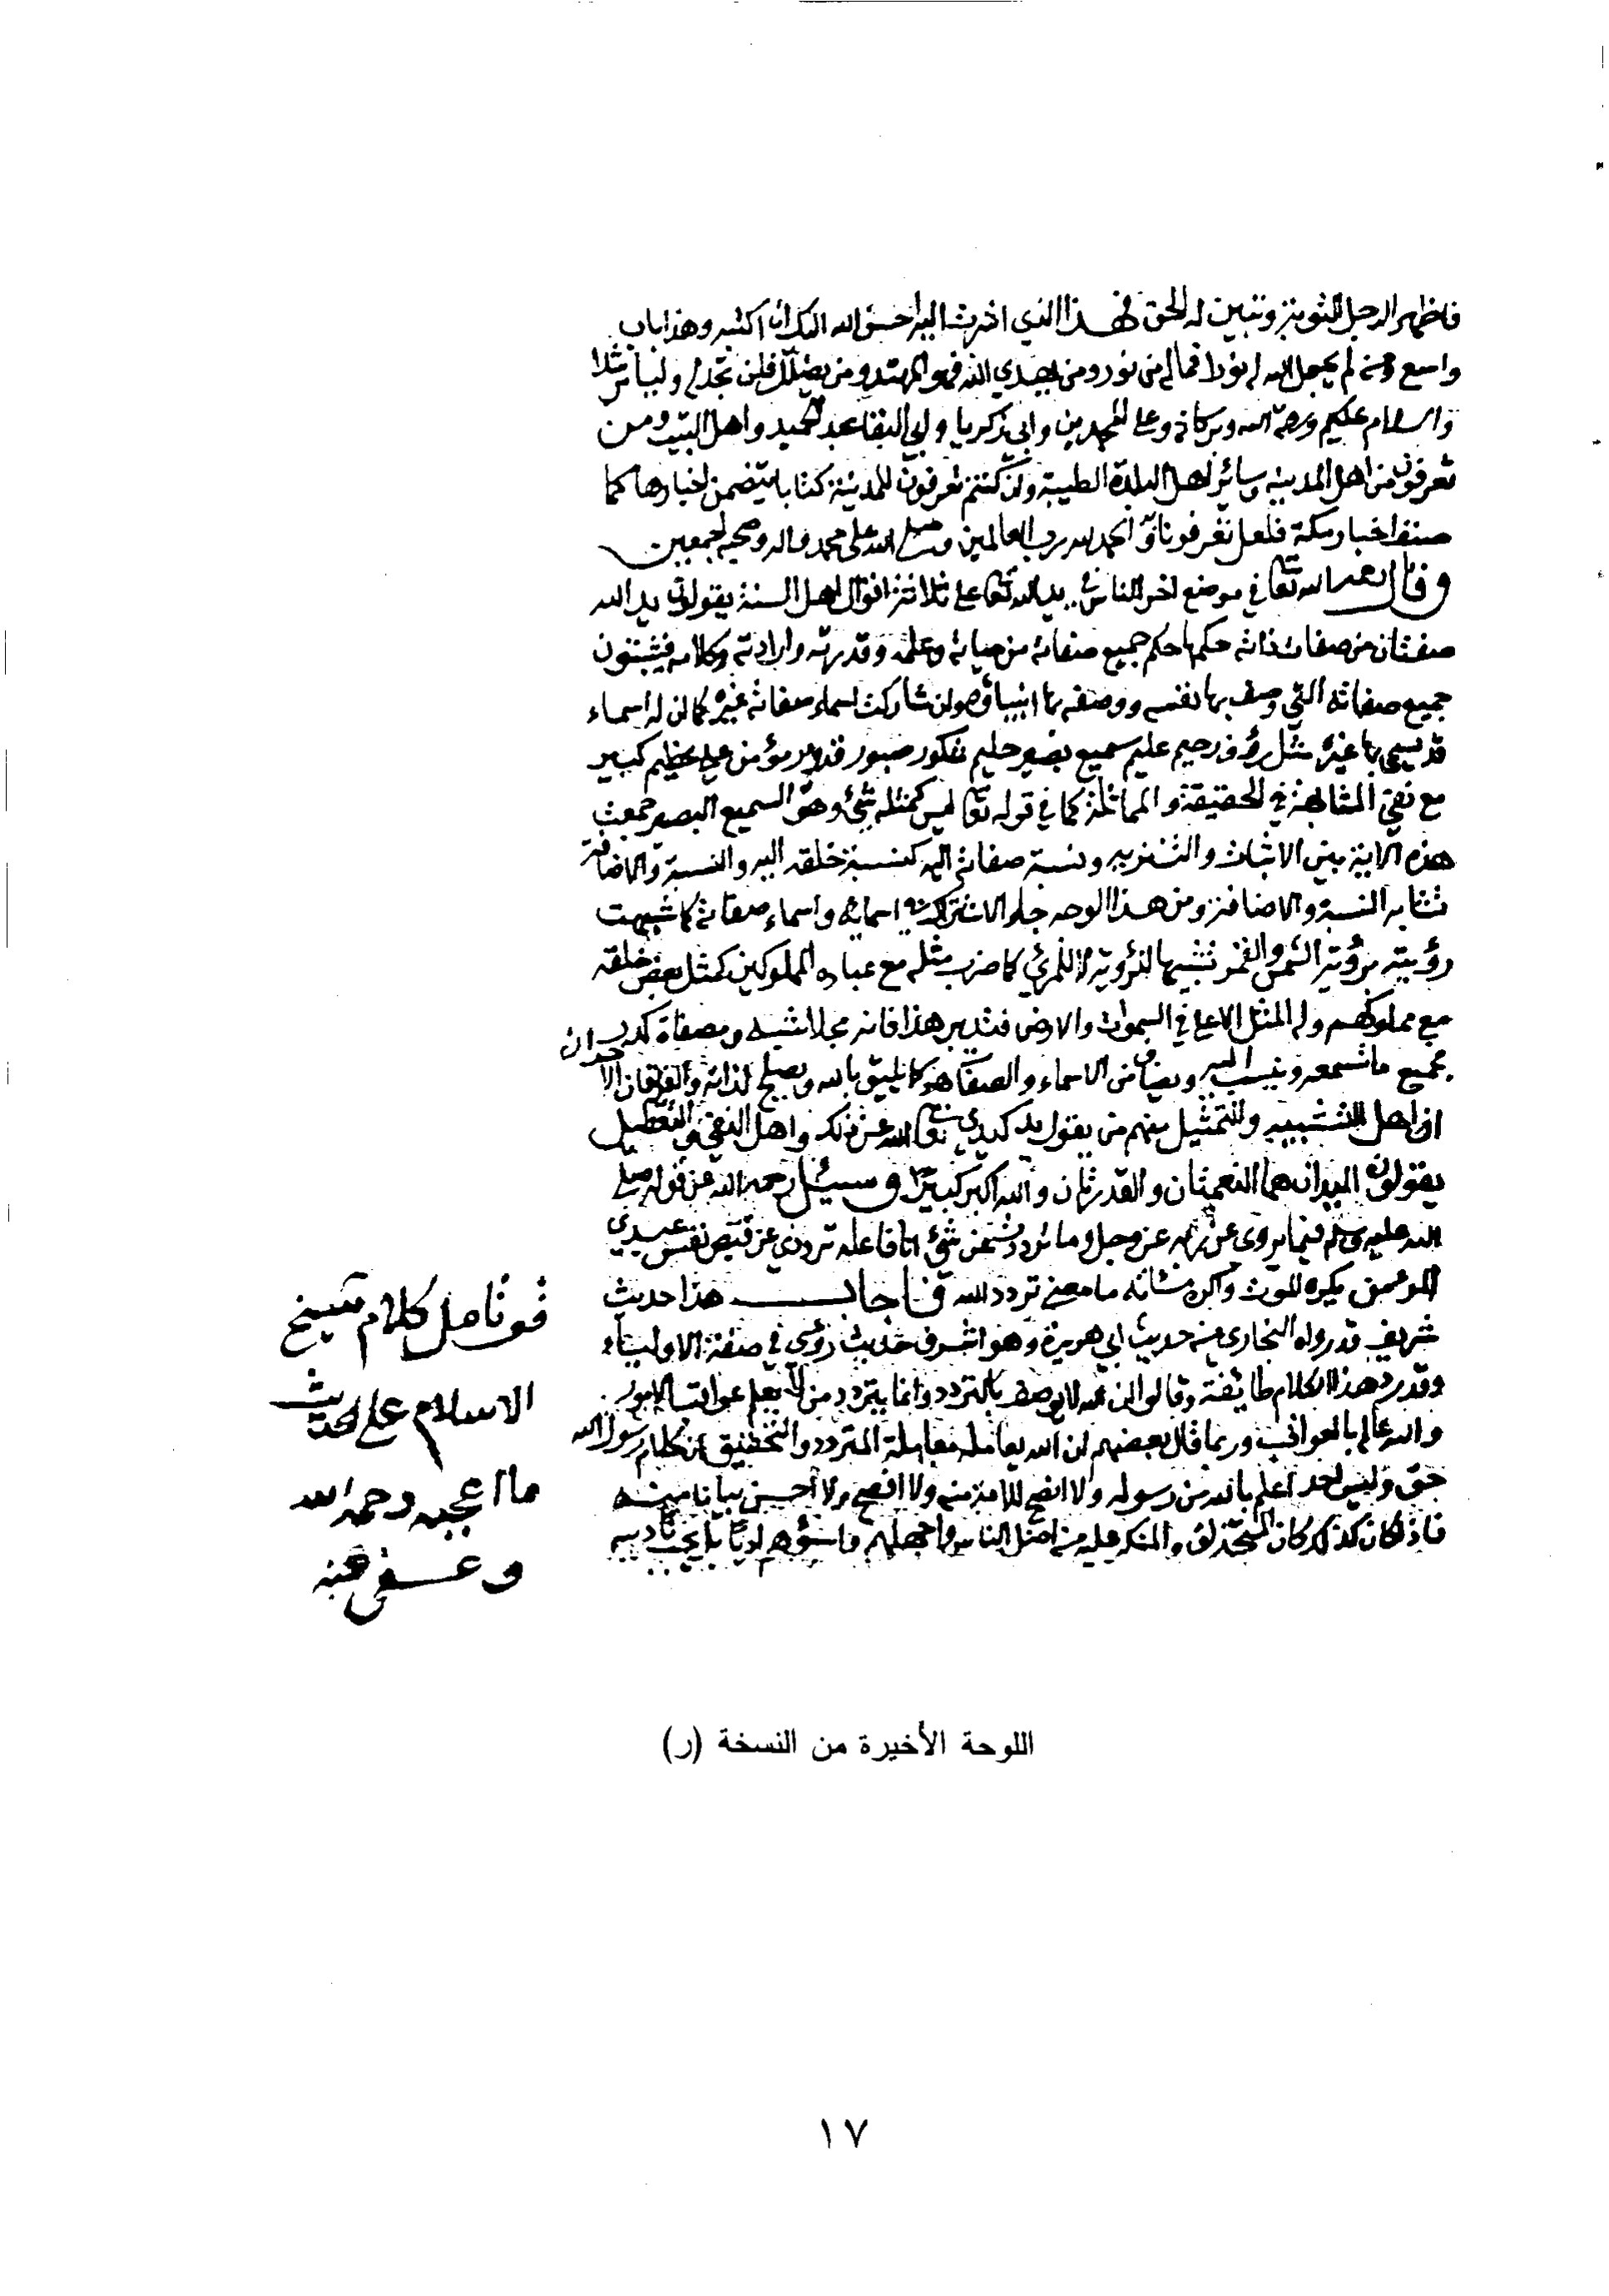 فاظهر الرجل التوبة وتبين له الحق فهذا الذي اشرت اليه احسن الله اليك ان اكتبه وهذا باب
واسع ومن لم يجعل الله له نورا فماله من نور ومن يهدي الله فهو المهتد ومن يضلل فلن تجد له وليا مرشدا
والسلام عليكم ورحمة الله وبركاته وعلى المحمدين وابي زكريا وابي البقا عبد الحميد واهل البيت ومن
تعرفونه من اهل المدينة وسائر اهل البلدة الطيبة وان كنتم تعرفون للمدينة كتابا يتضمن اخبارها كما
صنف اخبار مكة فلعل تعرفونا والحمد لله رب العالمين وصلى الله على محمد واله وصحبه اجمعين
وقال رحمه الله تعا في موضع اخر الناس في يد الله تعا على ثلاثة اقوال اهل السنة يقولون يد الله
صفتان من صفات ذاته حكمها حكم جميع صفاته من حياته وعلمه وقدرته وارادته وكلامه فيثبتون
جميع صفاته التي وصف بها نفسه ووصفه بها انبياؤه وان شاركت اسماء صفاته غيره كما ان له اسماء
قد يسمى بها غيره مثل رؤف رحيم عليم سميع بصير حليم شكور صبور قدير مؤمن علي عظيم كبير
مع نفي المشابهة في الحقيقة والمماثلة كما في قوله تعا ليس كمثله شيء وهو السميع البصير جمعت
هذه الاية بين الاثبات والتنزيه ونسبة صفاته اليه كنسبة خلقه اليه والنسبة والاضافة
تشابه النسبة والاضافة ومن هذا الوجه جاء الاشتراك في اسمائه واسماء صفاته كما شبهت
رؤيته برؤية الشمس والقمر تشبيها للرؤية لا للمرئي كما ضرب مثله مع عباده المملوكين كمثل بعض خلقه
مع مملوكهم وله المثل الاعلى في السموات والارض فتدبر هذا فانه مجلا شبه ومصفاة كدر
جميع ما تسمعه وينسب اليه ويضاف من الاسماء والصفات هو كما يليق بالله ويصلح لذاته والفريقان الاخران
اذ اهل التشبيه والتمثيل منهم من يقول يد كيدي تعا الله عن ذلك واهل النفي والتعطيل
يقولون اليدان هما النعمتان والقدرتان والله اكبر كبيرا وسئل رحمه الله عن قوله صلى
الله عليه وسلم فيما يروى عن ربه عز وجل وما ترددت عن شيء انا فاعله ترددي عن قبض نفس عبدي
المؤمن يكره الموت واكره مسائته ما معنى تردد الله فاجاب هذا حديث
شريف قد رواه البخاري من حديث ابي هريرة وهو اشرف حديث روي في صفة الاولياء
وقد رد هذا الكلام طائفة وقالوا ان الله لا يوصف بالتردد وانما يتردد من لا يعلم عواقب الامور
والله عالم بالعواقب وربما قال بعضهم ان الله يعامل معاملة المتردد والتحقيق ان كلام رسول الله
حق وليس احد اعلم بالله من رسوله ولا انصح للامة منه ولا افصح ولا احسن بيانا منه
فاذا كان كذلك كان المتحذلق والمنكر عليه من اضل الناس واجهلهم واسؤهم ادبا بل يجب تاديبه
قوتامل كلام شيخ
الاسلام على الحديث
ما اعجبه رحمه الله
وعفى عنه
اللوحة الأخيرة من النسخة (ر)
١٧